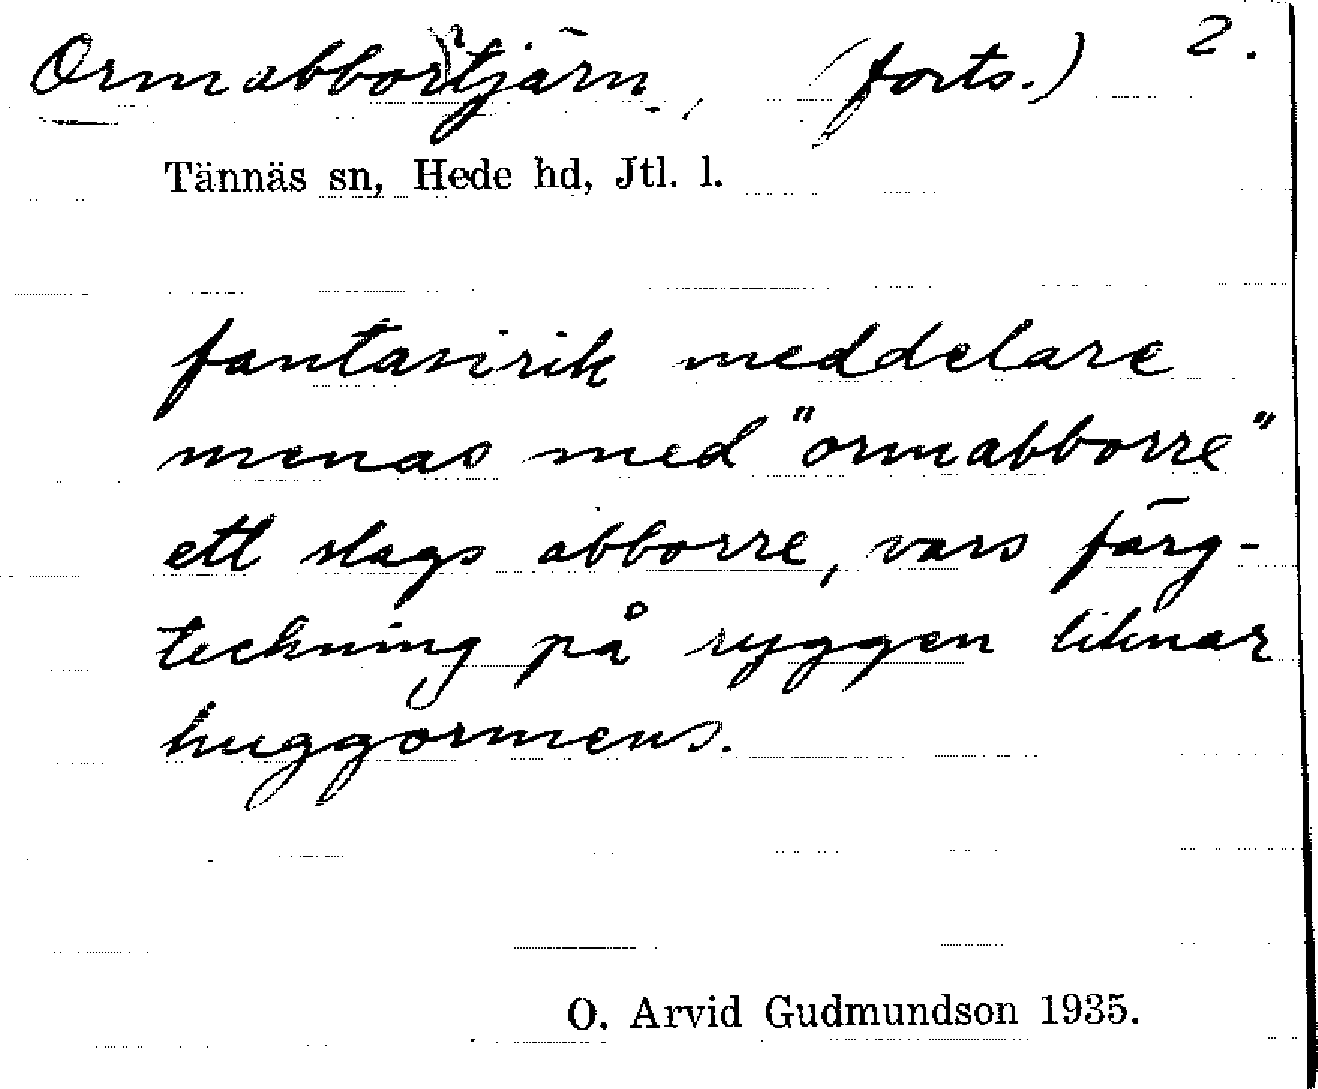 Ormabbortjärn, (forts.) 2.
Tännäs sn, Hede hd, Jtl. l.
fantasirik meddelare
menas med "ormabborre"
ett slags abborre, vars färg-
teckning på ryggen liknar
huggormens.
O. Arvid Gudmundson 1935.